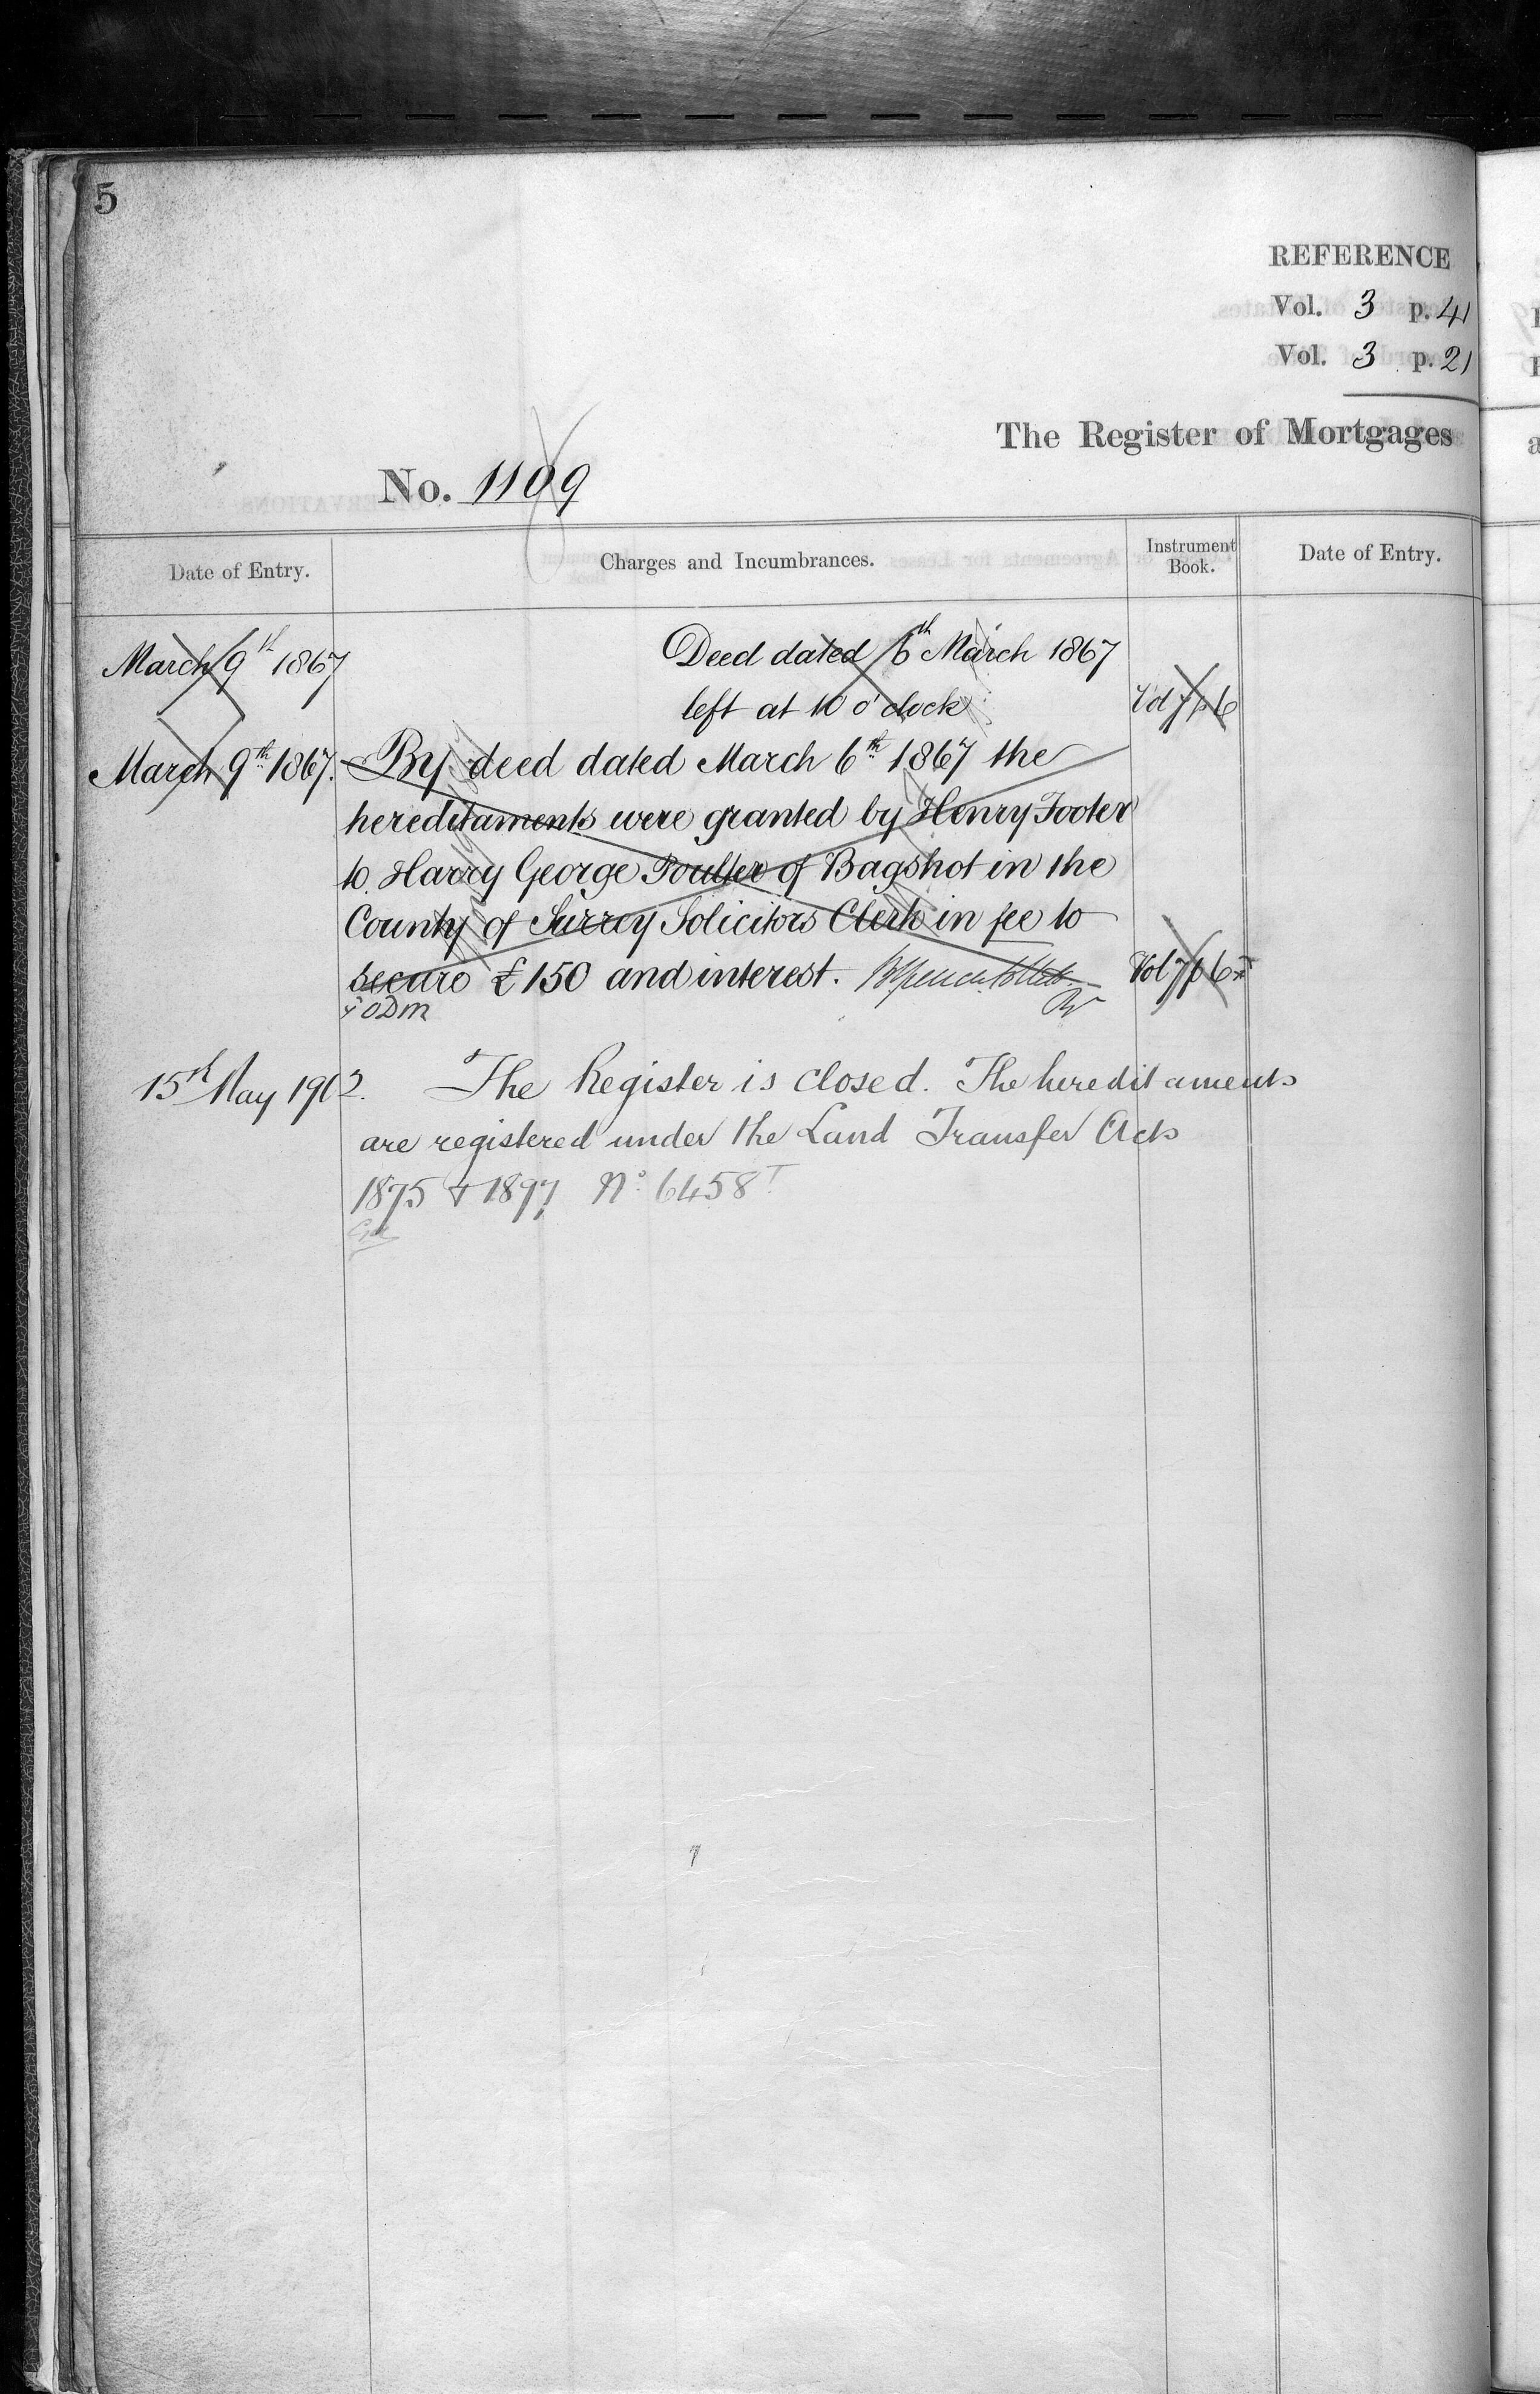 5
REFERENCE
Vol. 3 p. 41
Vol. 3 p. 21
The Register of Mortgages
No. 1109
Date of Entry.
Charges and Incumbrances.
Instrument Book.
Date of Entry.
March 9th 1867
Deed dated 6th March 1867
left at 10 o'clock
Vol 7 p 6
March 9th 1867.
By deed dated March 6th 1867 the
hereditaments were granted by Henry Footer
to Harry George Poulter of Bagshot in the
County of Surrey Solicitors Clerk in fee to
secure £150 and interest.
Vol 7 p 6
15th May 1902.
The Register is closed. The hereditaments
are registered under the Land Transfer Acts
1875 & 1897 No. 6458